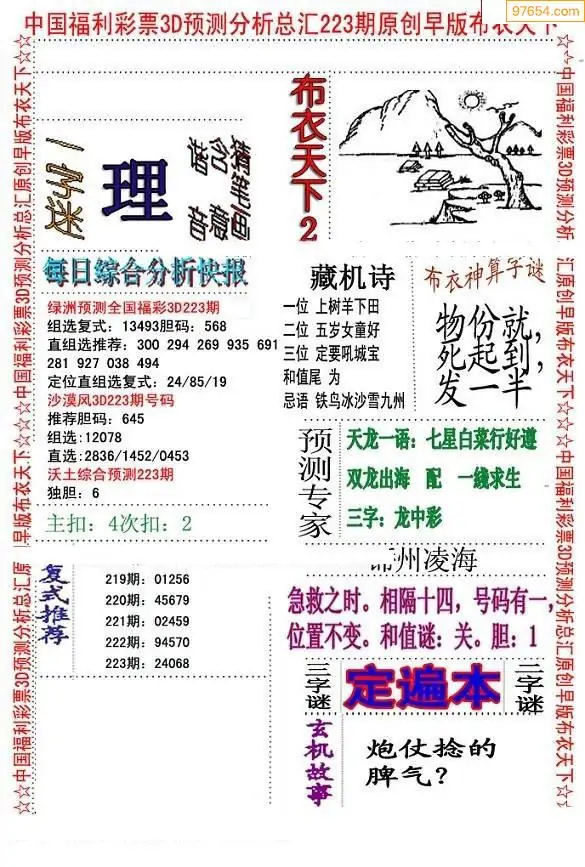 97654.com
中国福利彩票3D预测分析总汇223期原创早版布衣天下
☆☆中国福利彩票3D预测分析总汇原创早版布衣天下☆☆
☆中国福利彩票3D预测分析
汇原创早版布衣天下☆☆
一字谜
理
谐含猜笔画
音意
布衣天下2
每日综合分析快报
绿洲预测全国福彩3D223期
组选复式：13493胆码：568
直组选推荐：300 294 269 935 691
281 927 038 494
定位直组选复式：24/85/19
沙漠风3D223期号码
推荐胆码：645
组选:12078
直选:2836/1452/0453
沃土综合预测223期
独胆：6
主扣：4次扣：2
藏机诗
一位 上树羊下田
二位 五岁女童好
三位 定要吼城宝
和值尾 为
忌语 铁鸟冰沙雪九州
布衣神算子谜
物份就，
死起到，
发一半
预测专家
天龙一语：七星白菜行好遵
双龙出海 配 一线求生
三字：龙中彩
锦州凌海
复式推荐
219期：01256
220期：45679
221期：02459
222期：94570
223期：24068
急救之时。相隔十四，号码有一，
位置不变。和值谜：关。胆：1
三字谜
定遍本
三字谜
玄机故事
炮仗捻的
脾气？